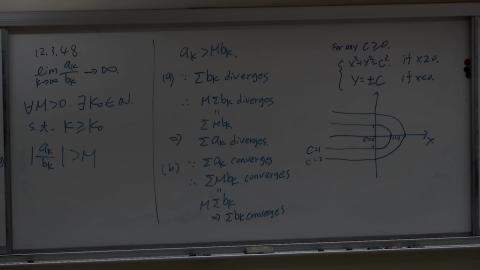 12.3.48
lim k→∞ ak/bk → ∞.
∀M>0. ∃ K₀ ∈ ℕ.
s.t. K ≥ K₀
|ak/bk| > M
ak > Mbk.
(a) ∵ Σbk diverges
∴ MΣbk diverges
"
ΣMbk
⇒ Σak diverges
(b) ∵ Σak converges
∴ ΣMbk converges
"
MΣbk
⇒ Σbk converges
For any C≥0.
{ x²+y²=C². if x≥0.
y=±C if x<0.
x
C=1